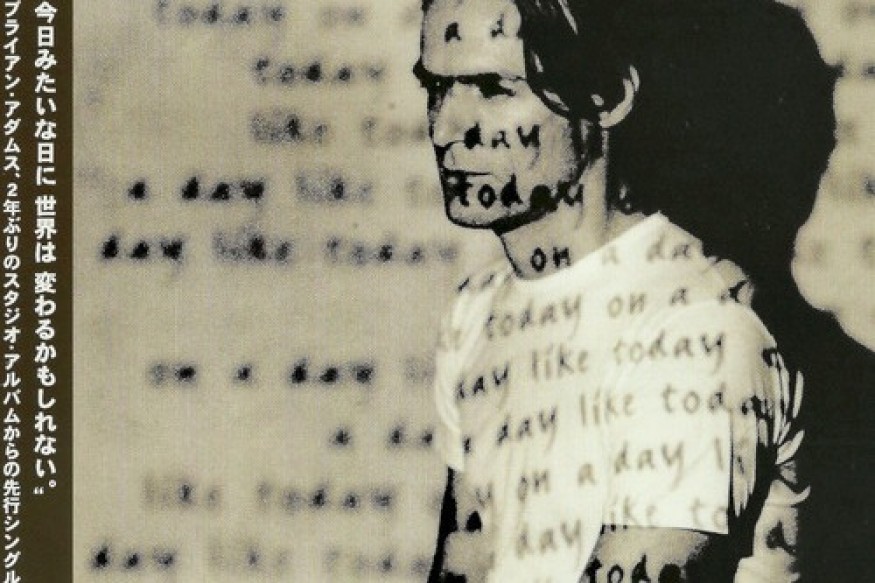 今日みたいな日に 世界は 変わるかもしれない。“
ブライアン・アダムス、2年ぶりのスタジオ・アルバムからの先行シングル
today on a d
today
like tod day
a day like today
day like today on a day
today on a d
day like today
on a day
day like tod
a da day
like today on a day
day like to
day like toda
tod